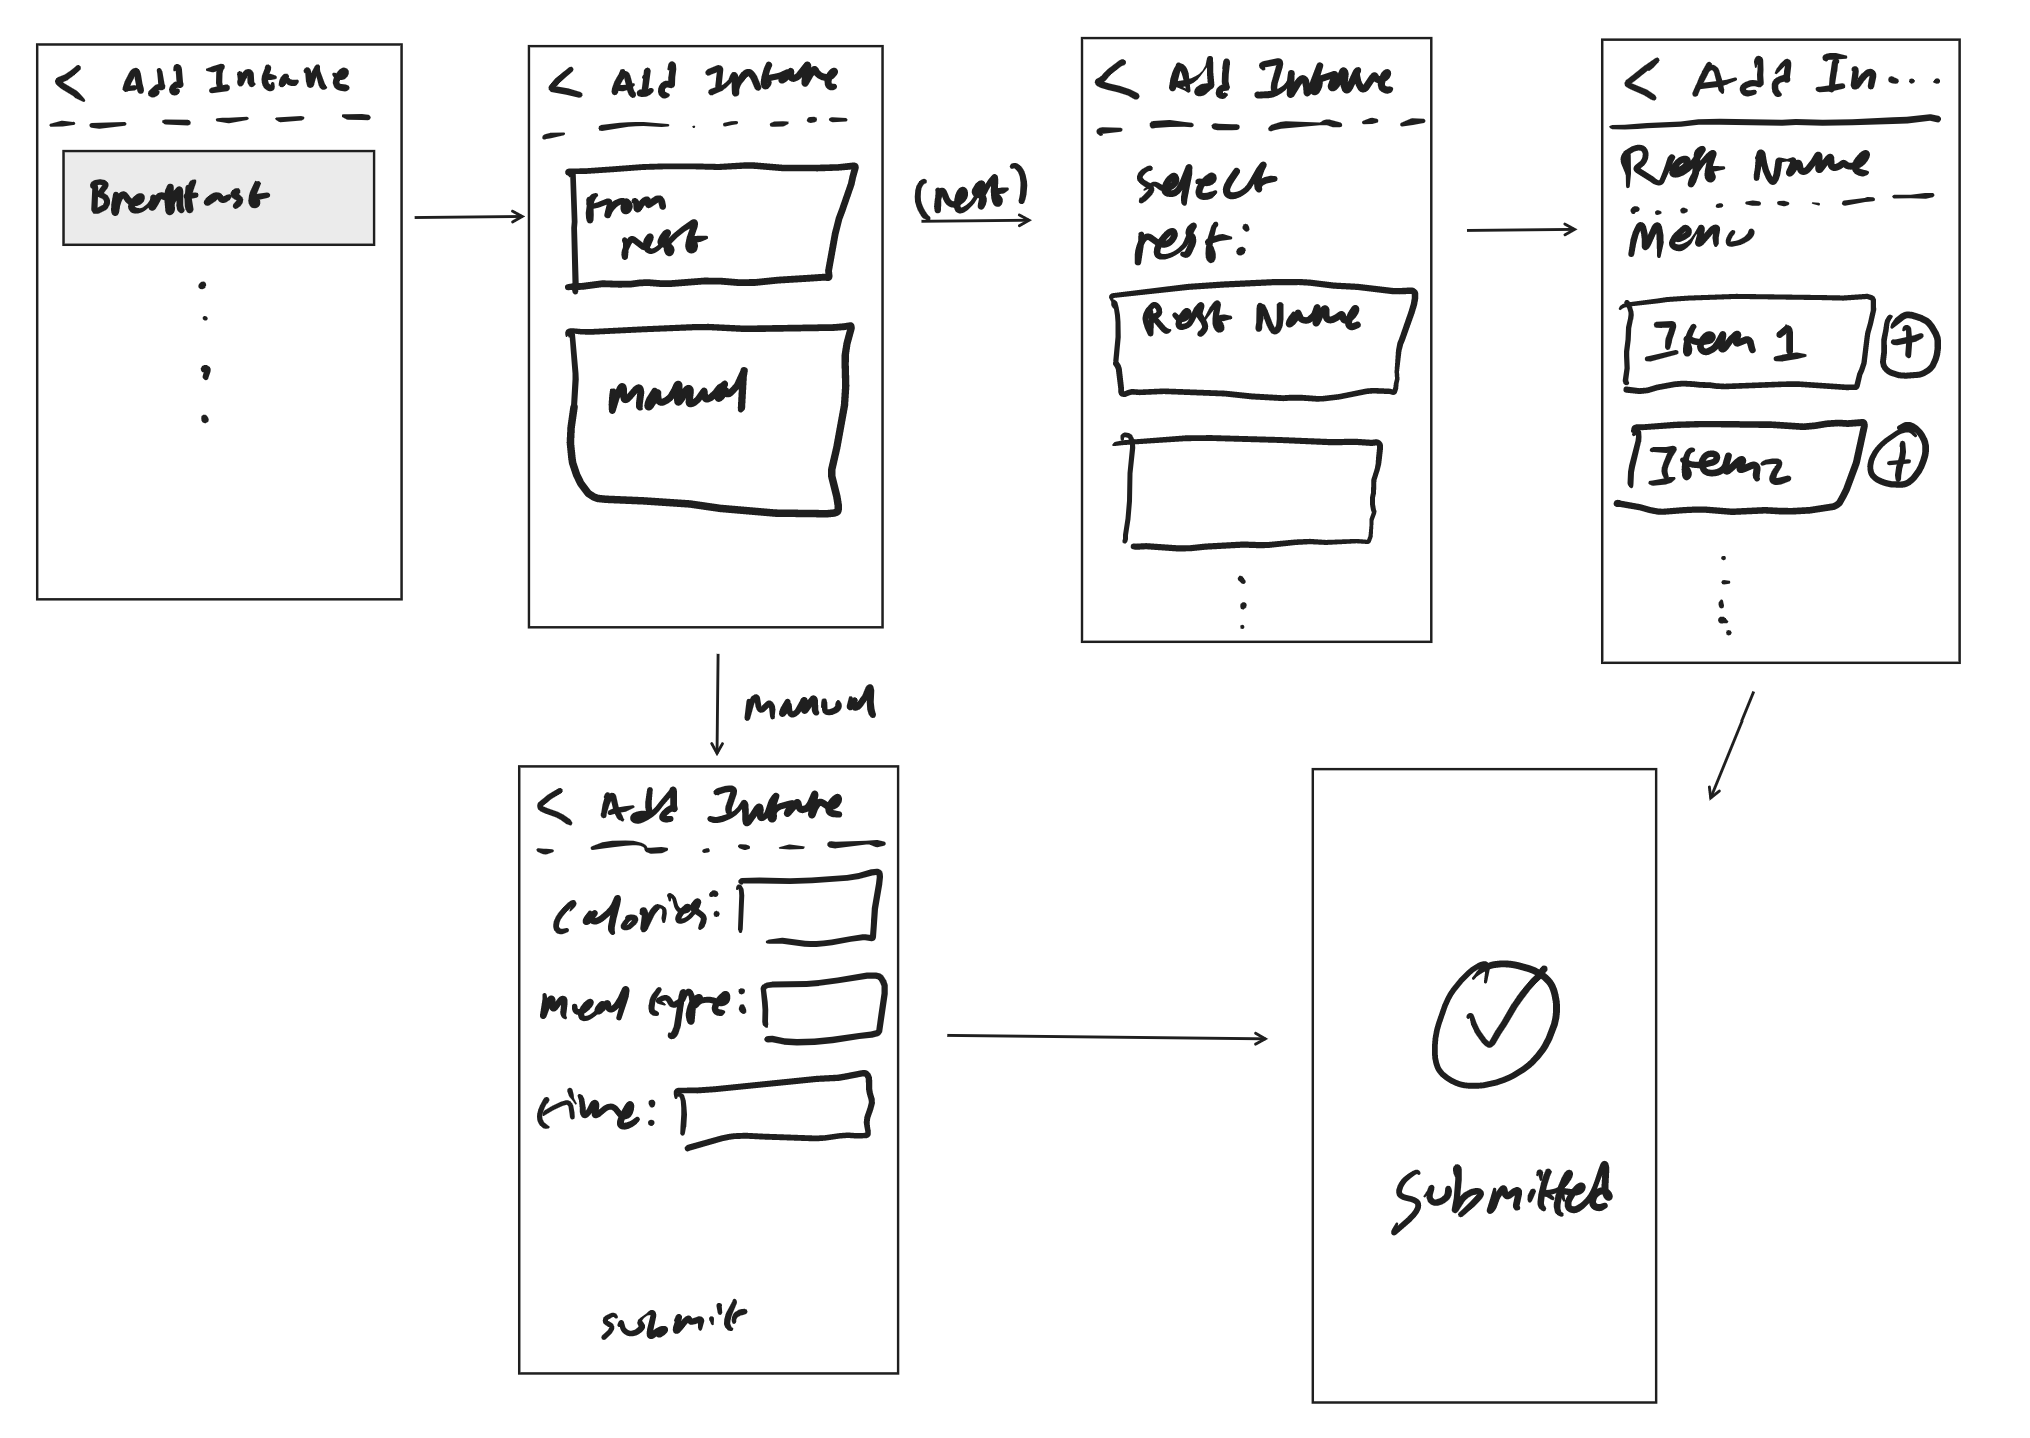 < Add Intake
Breakfast
< Add Intake
From
rest
manual
(rest)
< Add Intake
select
rest:
Rest Name
< Add In....
Rest Name
Menu
Item 1 +
Item 2 +
manual
< Add Intake
Calories:
meal type:
time:
submit
Submitted